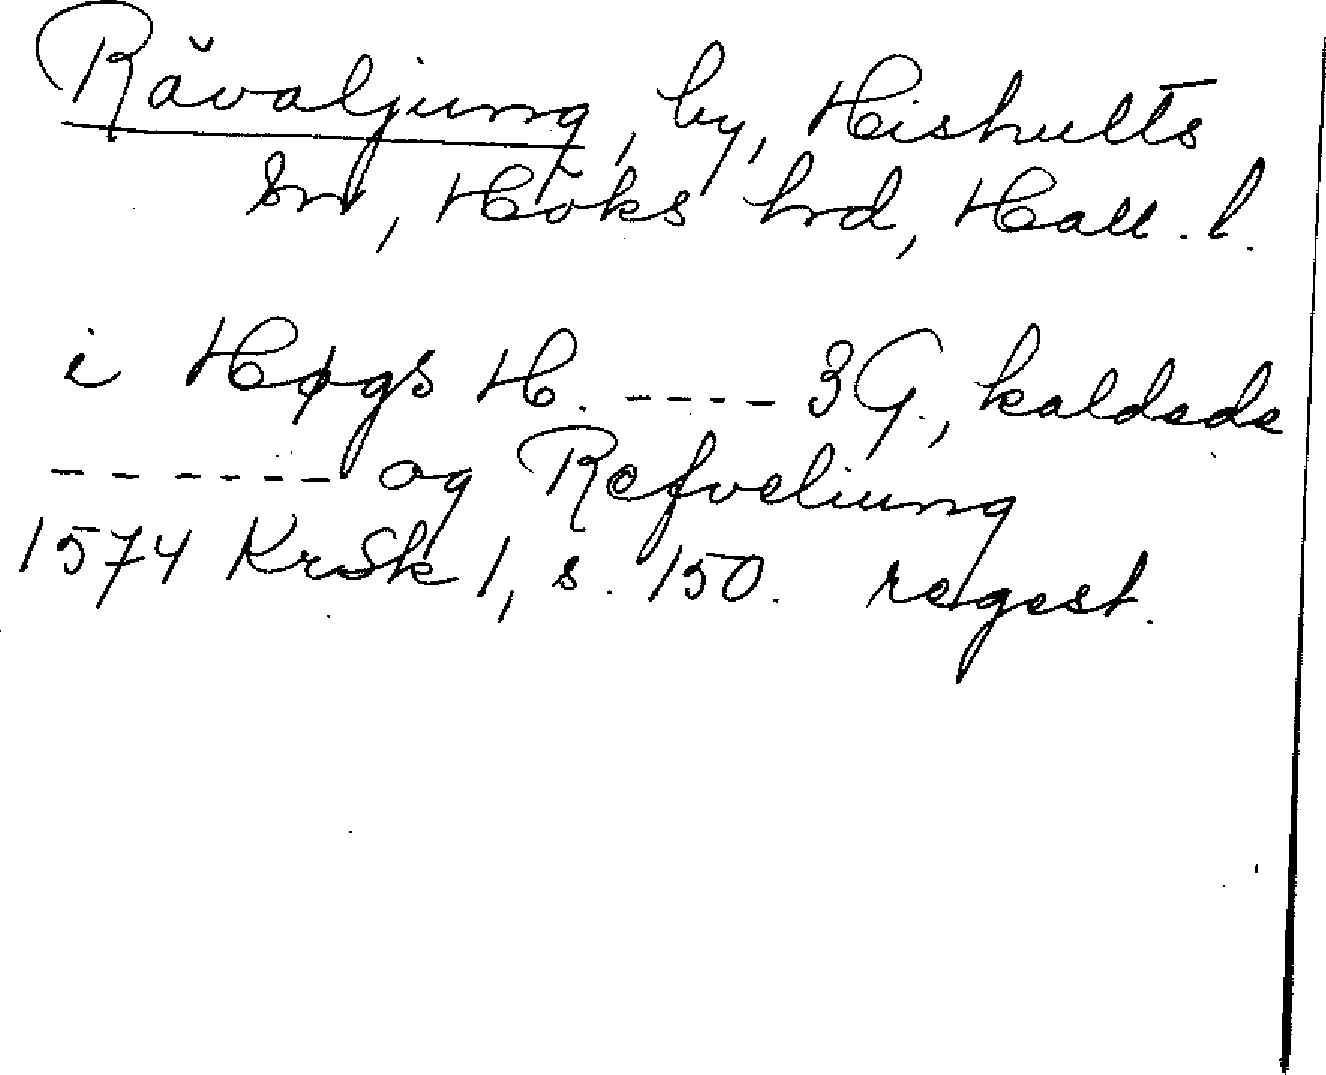 Rävaljung, by, Hishults
sn, Höks hrd, Hall. l.
i Høgs H. ---- 3 G., kaldede
------ og Refveliung
1574 KrSk 1, s. 150. regest.